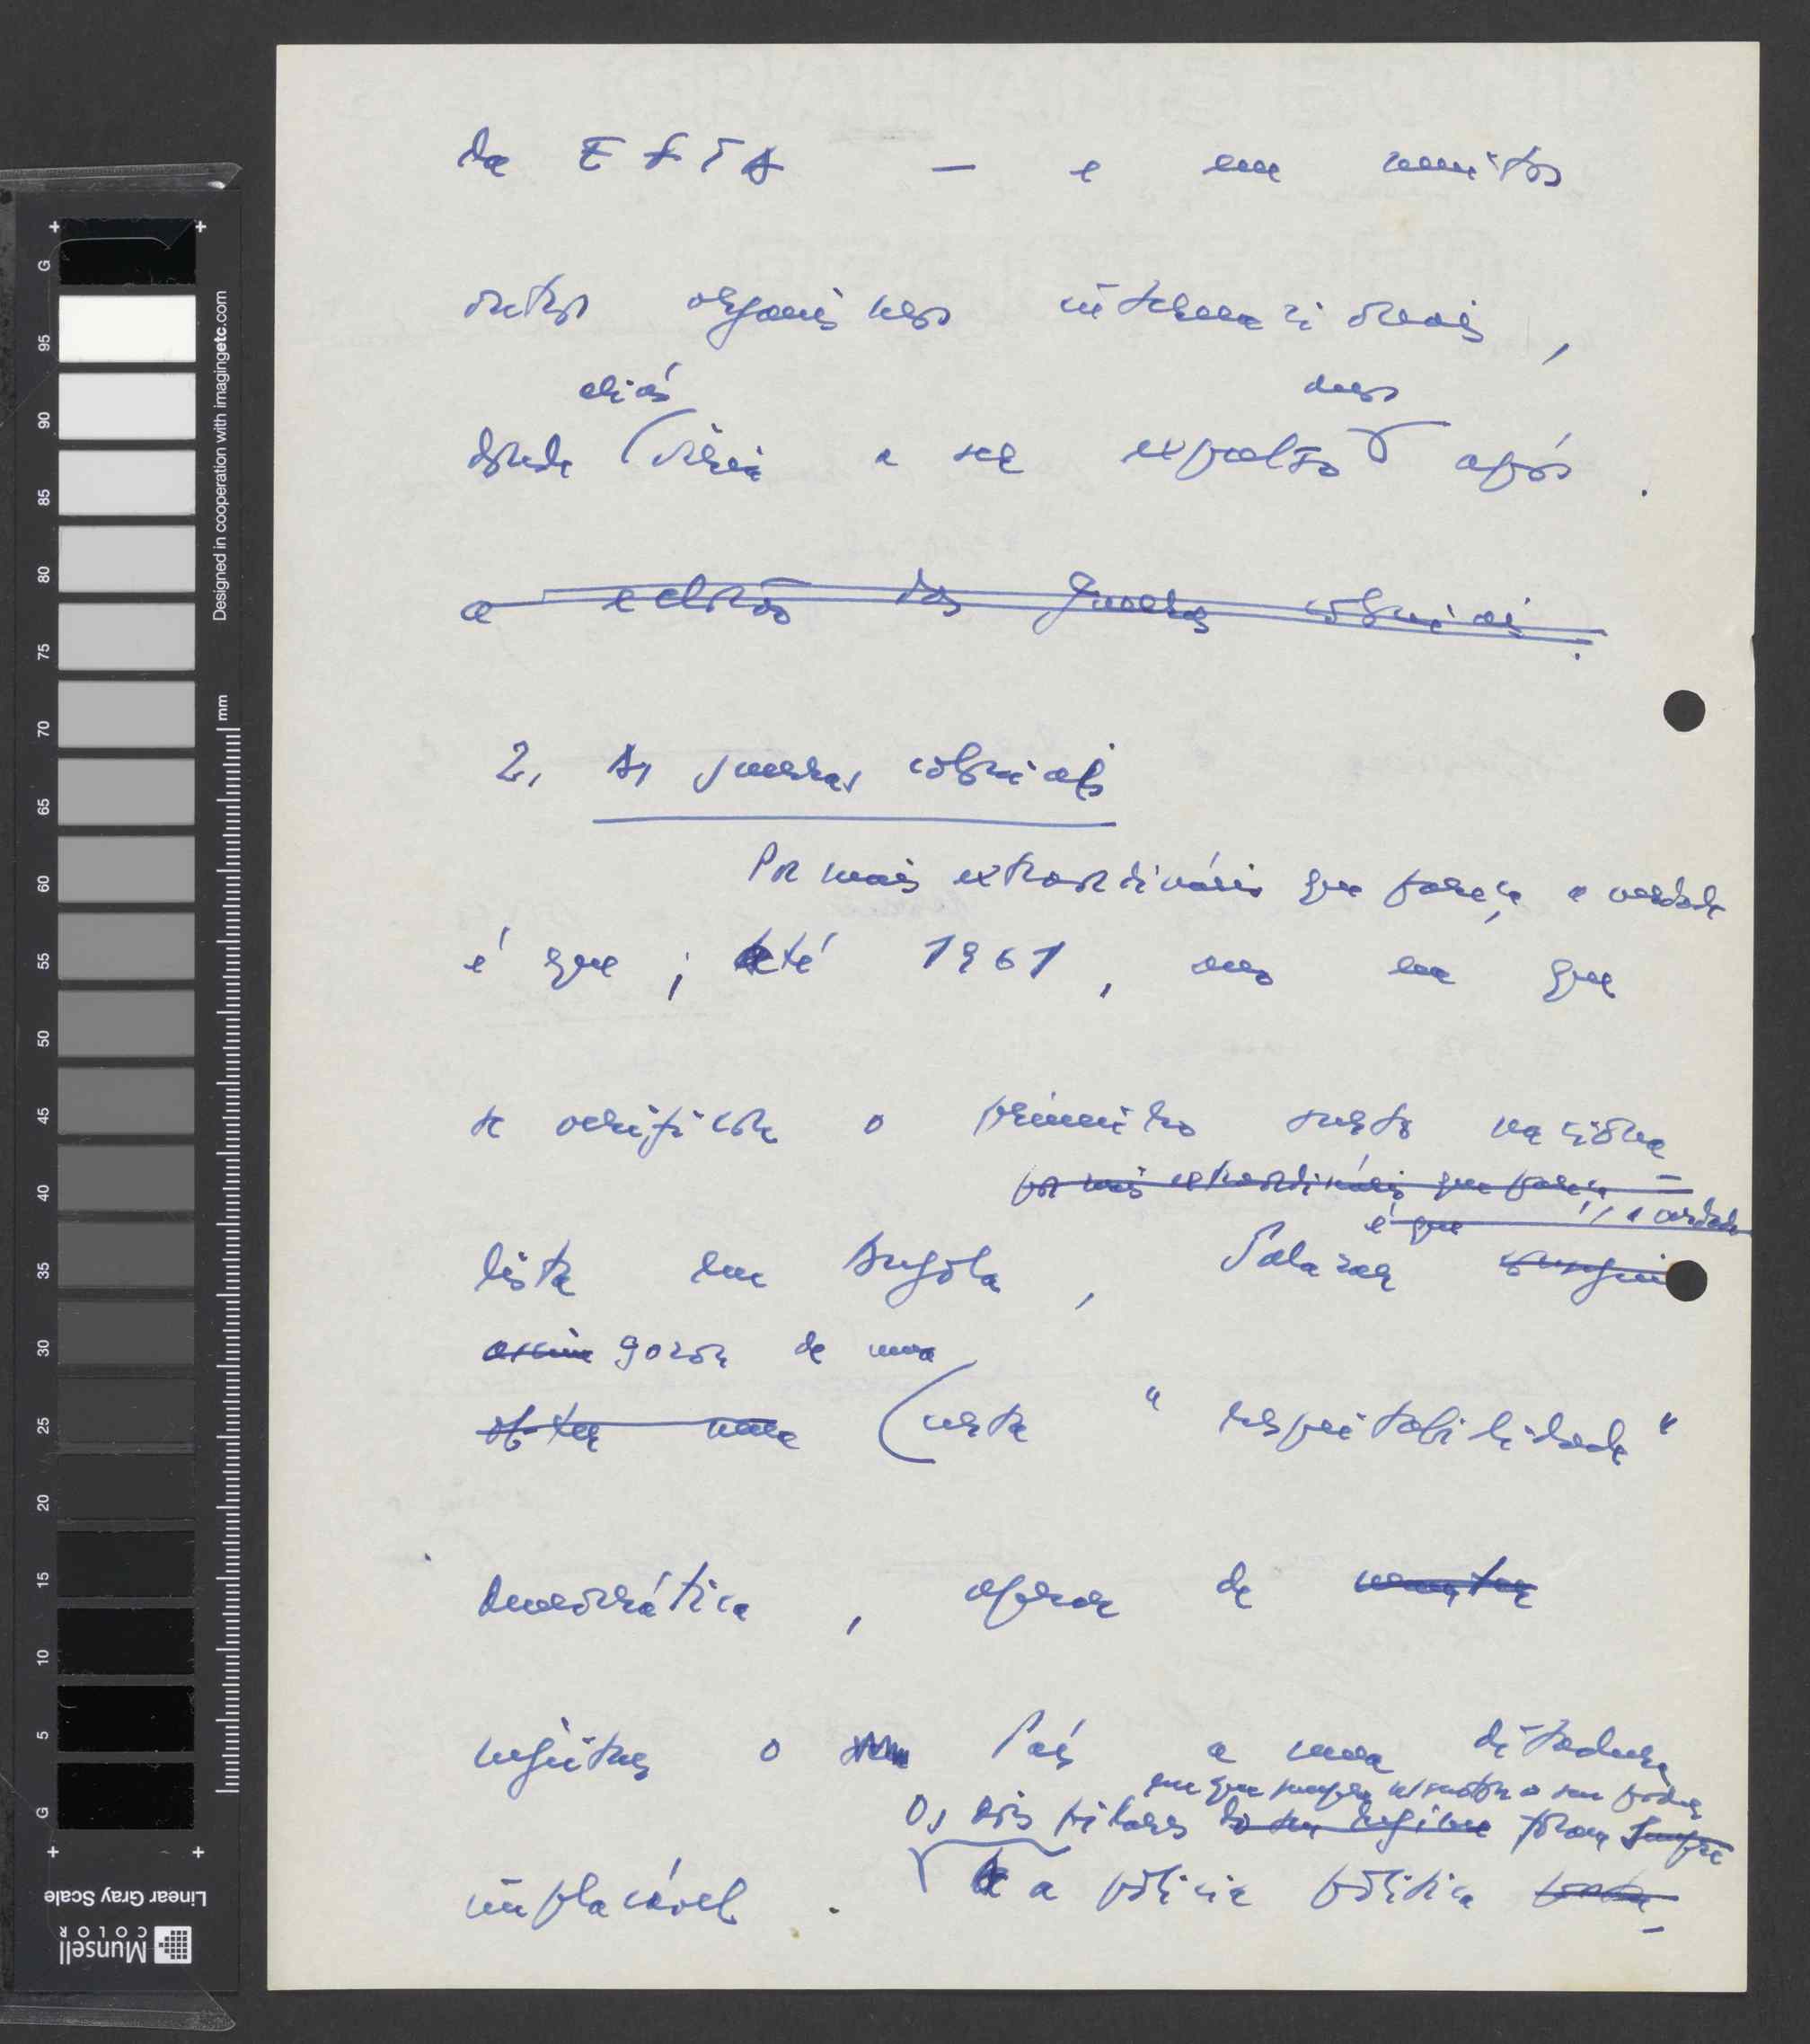 da EFTA — e em muitos
outros organismos internacionais,
aliás
anos
donde viria a ser expulso após.
a eclosão das guerras coloniais.
2. As guerras coloniais
Por mais extraordinário que pareça a verdade
é que, até 1961, ano em que
se verificou o primeiro surto naciona-
por mais extraordinário que pareça, a verdade
é que
lista em Angola, Salazar
assim gozou de uma
obter uma certa "respeitabilidade"
democrática, apesar de manter
sujeitar o País a uma ditadura
em que sempre assentou o seu poder
Os dois pilares do seu regime foram sempre
implacável. a polícia política
G
95
90
85
80
75
70
65
60
55
50
45
40
35
30
25
20
15
10
5
G
mm
Designed in cooperation with imagingetc.com
Linear Gray Scale
Munsell
COLOR